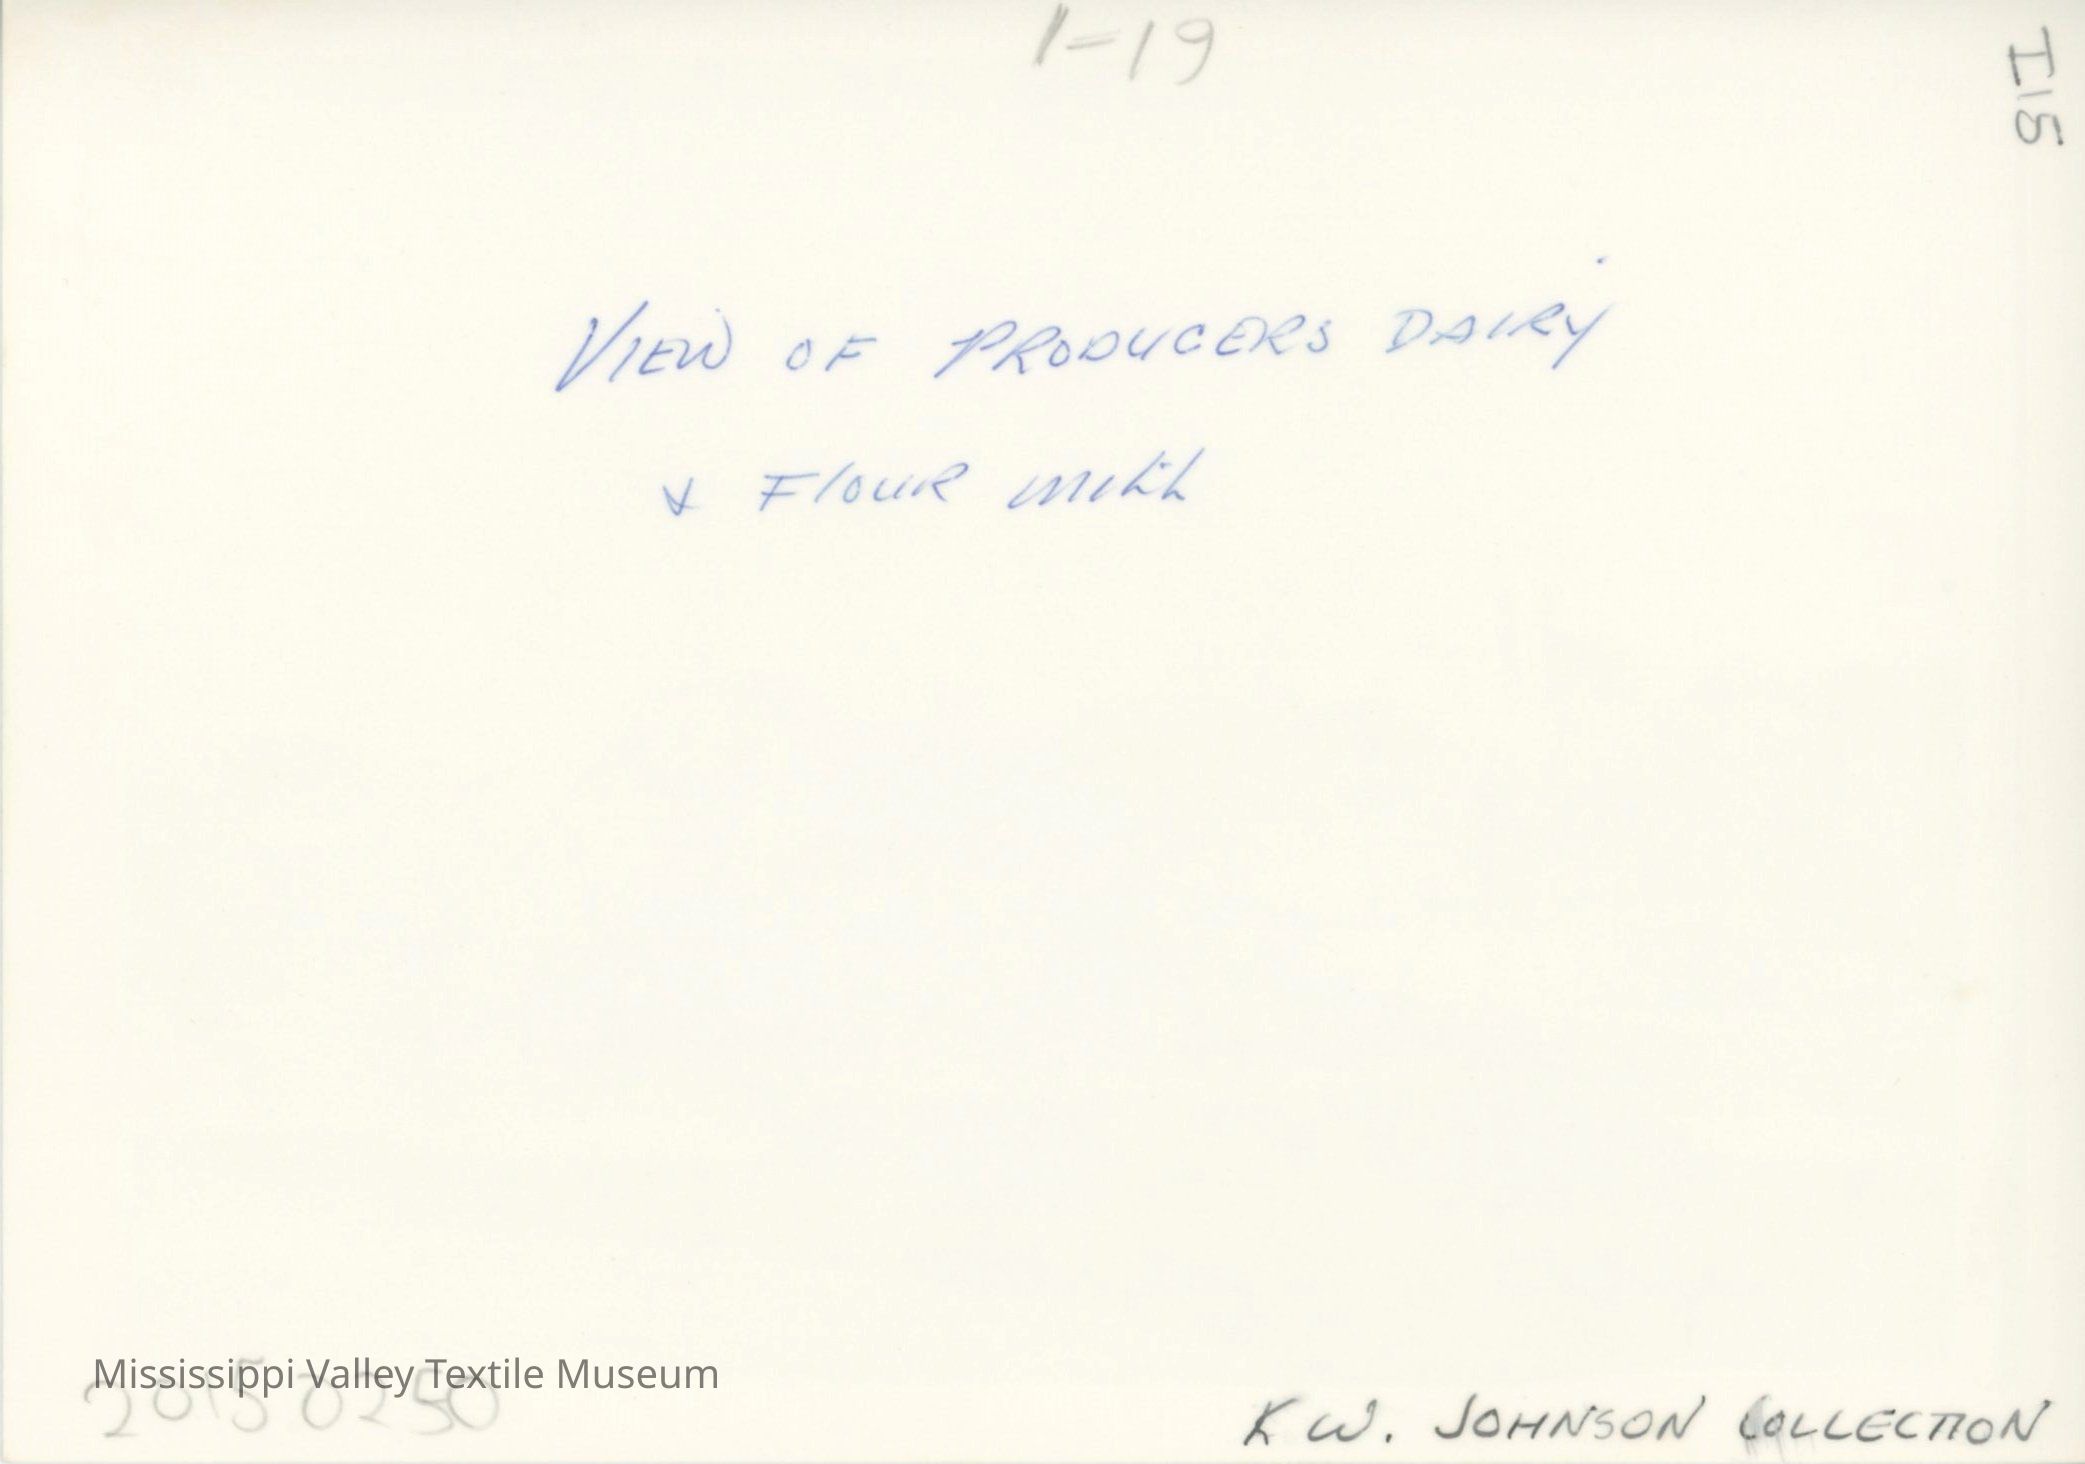 1-19
I15
VIEW OF PRODUCERS DAIRY
& FLOUR MILL
Mississippi Valley Textile Museum
20150250
K W. JOHNSON COLLECTION